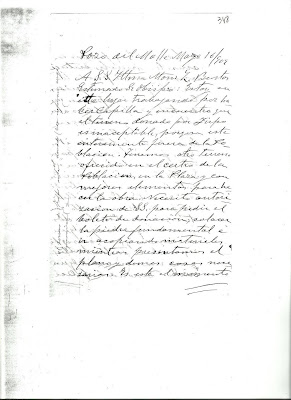 348
Pozo del Molle Marzo 16/909
A S. S. Iltma Mons Z. Bustos
Estimado Sr Obispo: estoy en
este lugar trabajando por la
Capilla y encuentro que
el terreno donado por
es inaceptable, porque está
enteramente fuera de la Po-
blacion. Tenemos otro terreno
ofrecido en el centro de la
Poblacion, en la Plaza y con
mejores elementos para he-
cer la obra. Necesito autori-
zacion de S.S. para pedir el
boleto de donacion, colocar
la piedra fundamental é
ir acopiando materiales,
mientras presentamos el
plano y demas cosas nece-
sarias. Es este el momento